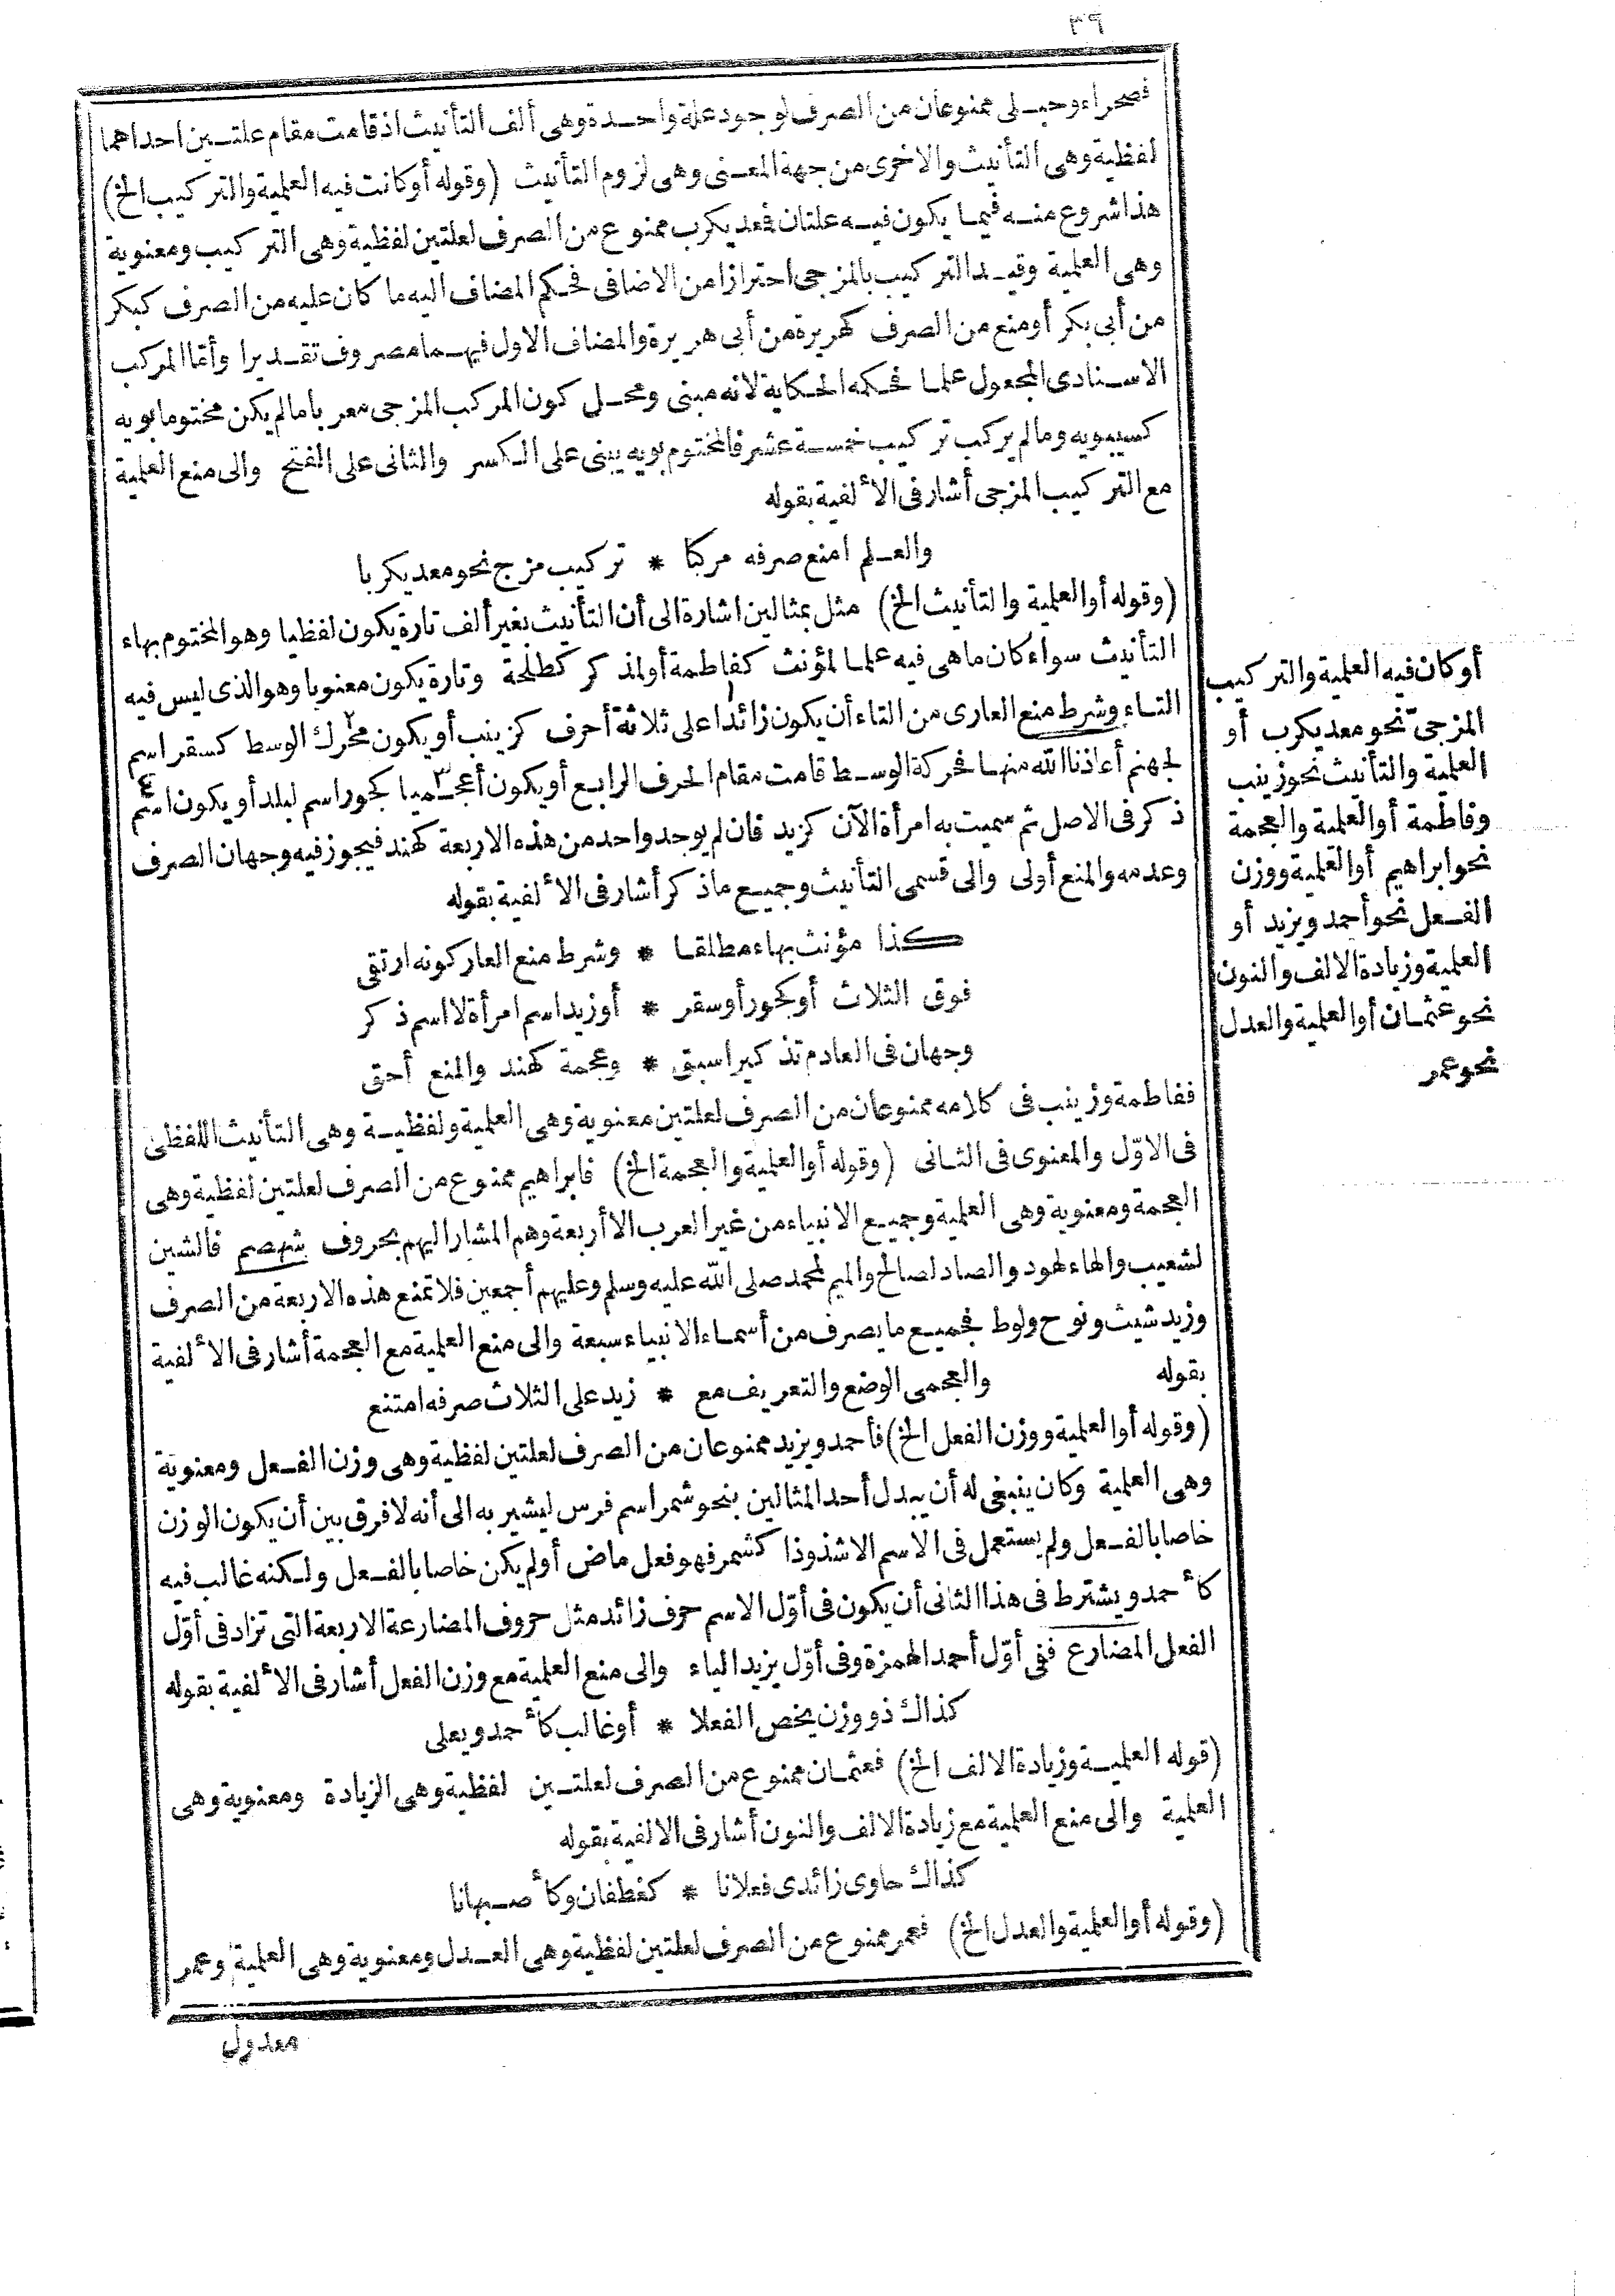 ٣٩
فصحراء وحبلى ممنوعان من الصرف لوجود علة واحدة وهى ألف التأنيث اذ قامت مقام علتين احداهما
لفظية وهى التأنيث والاخرى من جهة المعنى وهى لزوم التأنيث (وقوله أو كانت فيه العلمية والتركيب الخ)
هذا شروع منه فيما يكون فيه علتان فمعديكرب ممنوع من الصرف لعلتين لفظية وهى التركيب ومعنوية
وهى العلمية وقيد التركيب بالمزجى احترازا من الاضافى فحكم المضاف اليه ما كان عليه من الصرف كبكر
من أبى بكر أو منع من الصرف كهريرة من أبى هريرة والمضاف الاول فيهما مصروف تقديرا وأما المركب
الاسنادى المجعول علما فحكمه الحكاية لانه مبنى ومحل كون المركب المزجى معربا ما لم يكن مختوما بويه
كسيبويه وما لم يركب تركيب خمسة عشر فالمختوم بويه يبنى على الكسر والثانى على الفتح والى منع العلمية
مع التركيب المزجى أشار فى الألفية بقوله
والعلم امنع صرفه مركبا * تركيب مزج نحو معديكربا
(وقوله أو العلمية والتأنيث الخ) مثل بمثالين اشارة الى أن التأنيث بغير ألف تارة يكون لفظيا وهو المختوم بهاء
التأنيث سواء كان ما هى فيه علما لمؤنث كفاطمة أو لمذكر كطلحة وتارة يكون معنويا وهو الذى ليس فيه
التاء وشرط منع العارى من التاء أن يكون زائدا على ثلاثة أحرف كزينب أو يكون محرك الوسط كسقر اسم
لجهنم أعاذنا الله منها فحركة الوسط قامت مقام الحرف الرابع أو يكون أعجميا كجور اسم لبلد أو يكون اسم
ذكر فى الاصل ثم سميت به امرأة الآن كزيد فان لم يوجد واحد من هذه الاربعة كهند فيجوز فيه وجهان الصرف
وعدمه والمنع أولى والى قسمى التأنيث وجميع ما ذكر أشار فى الألفية بقوله
كذا مؤنث بهاء مطلقا * وشرط منع العار كونه ارتقى
فوق الثلاث أو كجور أو سقر * أو زيد اسم امرأة لا اسم ذكر
وجهان فى العادم تذكيرا سبق * وعجمة كهند والمنع أحق
ففاطمة وزينب فى كلامه ممنوعان من الصرف لعلتين معنوية وهى العلمية ولفظية وهى التأنيث اللفظى
فى الاوّل والمعنوى فى الثانى (وقوله أو العلمية والعجمة الخ) فابراهيم ممنوع من الصرف لعلتين لفظية وهى
العجمة ومعنوية وهى العلمية وجميع الانبياء من غير العرب الا أربعة وهم المشار اليهم بحروف شهصم فالشين
لشعيب والهاء لهود والصاد لصالح والميم لمحمد صلى الله عليه وسلم وعليهم أجمعين فلا تمنع هذه الاربعة من الصرف
وزيد شيث ونوح ولوط فجميع ما يصرف من أسماء الانبياء سبعة والى منع العلمية مع العجمة أشار فى الألفية
بقوله والعجمى الوضع والتعريف مع * زيد على الثلاث صرفه امتنع
(وقوله أو العلمية ووزن الفعل الخ) فأحمد ويزيد ممنوعان من الصرف لعلتين لفظية وهى وزن الفعل ومعنوية
وهى العلمية وكان ينبغى له أن يبدل أحد المثالين بنحو شمر اسم فرس ليشير به الى أنه لا فرق بين أن يكون الوزن
خاصا بالفعل ولم يستعمل فى الاسم الا شذوذا كشمر فهو فعل ماض أو لم يكن خاصا بالفعل ولكنه غالب فيه
كأحمد ويشترط فى هذا الثانى أن يكون فى أوّل الاسم حرف زائد مثل حروف المضارعة الاربعة التى تزاد فى أوّل
الفعل المضارع ففى أوّل أحمد الهمزة وفى أوّل يزيد الياء والى منع العلمية مع وزن الفعل أشار فى الألفية بقوله
كذاك ذو وزن يخص الفعلا * أو غالب كأحمد ويعلى
(قوله العلمية وزيادة الالف الخ) فعثمان ممنوع من الصرف لعلتين لفظية وهى الزيادة ومعنوية وهى
العلمية والى منع العلمية مع زيادة الالف والنون أشار فى الالفية بقوله
كذاك حاوى زائدى فعلانا * كغطفان وكأصبهانا
(وقوله أو العلمية والعدل الخ) فعمر ممنوع من الصرف لعلتين لفظية وهى العدل ومعنوية وهى العلمية وعمر
معدول
أو كان فيه العلمية والتركيب
المزجىّ نحو معديكرب أو
العلمية والتأنيث نحو زينب
وفاطمة أو العلمية والعجمة
نحو ابراهيم أو العلمية ووزن
الفعل نحو أحمد ويزيد أو
العلمية وزيادة الالف والنون
نحو عثمان أو العلمية والعدل
نحو عمر